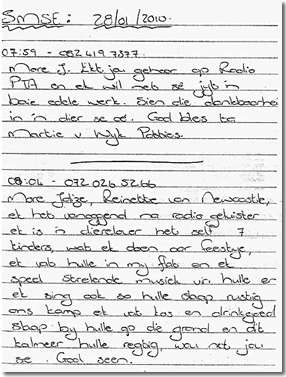 SMSE: 28/01/2010.
07:59 - 082 419 7377.
More J. Ekt jou gehoor op Radio
PTA en ek wil net sê jy't in
baie edele werk. Sien die dankbaarheid
in 'n dier se oë. God bles ta
Martie v Wyk Pobbies.
08:04 - 072 026 5266
More Jotize, Reinette van Newcastle,
ek het vanoggend na radio geluister
ek is 'n dierelover het self 7
kinders, wat ek doen oor feestye,
ek vat hulle in my flat en ek
speel strelende musiek vir hulle en
ek sing ook so hulle slaap rustig
ons kamp ek vat kos en drinkgoed
slaap by hulle op die grond en dit
kalmeer hulle regtig, wou net jou
sê. God seën.